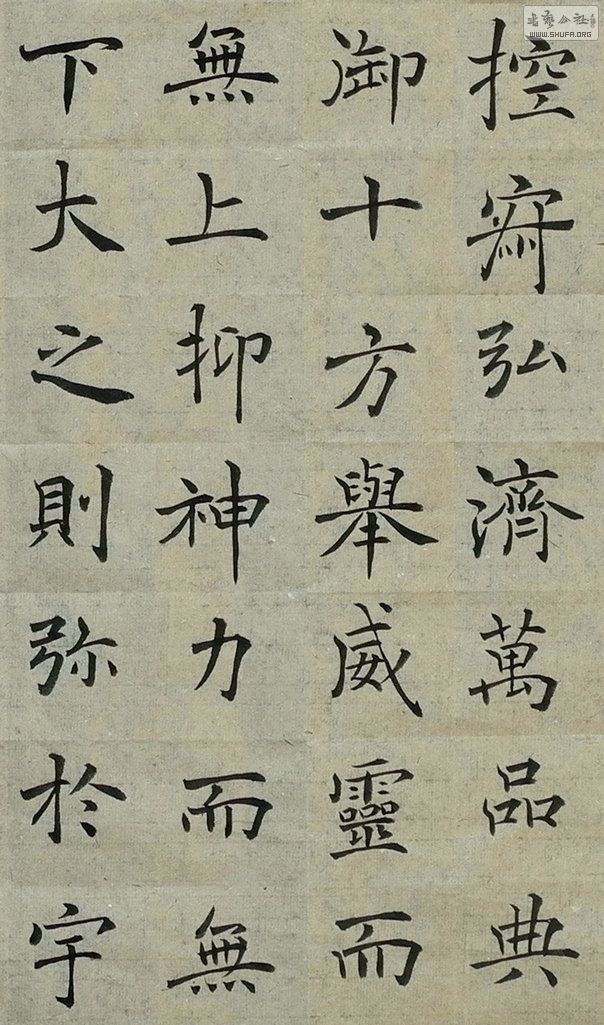 控寂弘濟萬品典
御十方舉威靈而
無上抑神力而無
下大之則弥於宇
WWW.SHUFA.ORG